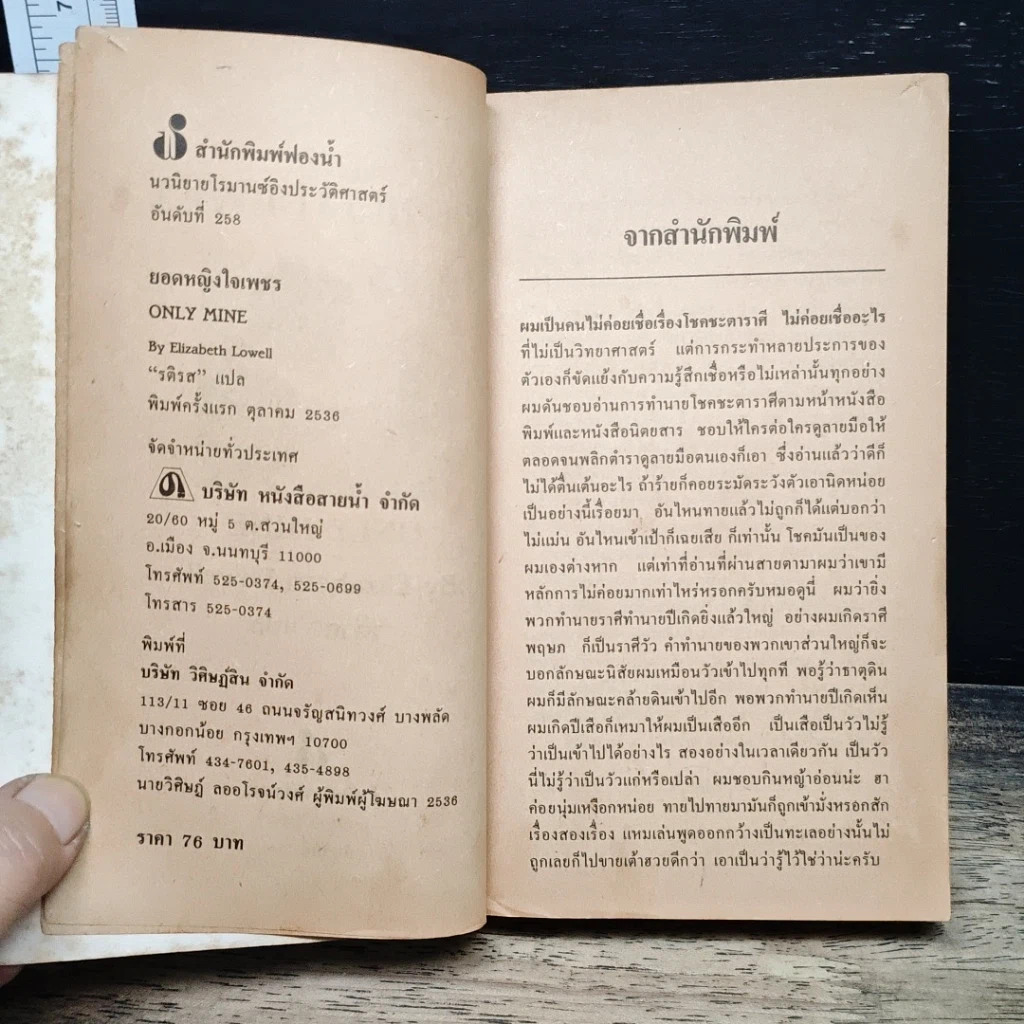 7
สำนักพิมพ์ฟองน้ำ
นวนิยายโรมานซ์อิงประวัติศาสตร์
อันดับที่ 258
ยอดหญิงใจเพชร
ONLY MINE
By Elizabeth Lowell
“รติรส” แปล
พิมพ์ครั้งแรก ตุลาคม 2536
จัดจำหน่ายทั่วประเทศ
บริษัท หนังสือสายน้ำ จำกัด
20/60 หมู่ 5 ต.สวนใหญ่
อ.เมือง จ.นนทบุรี 11000
โทรศัพท์ 525-0374, 525-0699
โทรสาร 525-0374
พิมพ์ที่
บริษัท วิศิษฏ์สิน จำกัด
113/11 ซอย 46 ถนนจรัญสนิทวงศ์ บางพลัด
บางกอกน้อย กรุงเทพฯ 10700
โทรศัพท์ 434-7601, 435-4898
นายวิศิษฎ์ ลออโรจน์วงศ์ ผู้พิมพ์ผู้โฆษณา 2536
ราคา 76 บาท
จากสำนักพิมพ์
ผมเป็นคนไม่ค่อยเชื่อเรื่องโชคชะตาราศี ไม่ค่อยเชื่ออะไร
ที่ไม่เป็นวิทยาศาสตร์ แต่การกระทำหลายประการของ
ตัวเองก็ขัดแย้งกับความรู้สึกเชื่อหรือไม่เหล่านั้นทุกอย่าง
ผมดันชอบอ่านการทำนายโชคชะตาราศีตามหน้าหนังสือ
พิมพ์และหนังสือนิตยสาร ชอบให้ใครต่อใครดูลายมือให้
ตลอดจนพลิกตำราดูลายมือตนเองก็เอา ซึ่งอ่านแล้วว่าดีก็
ไม่ได้ตื่นเต้นอะไร ถ้าร้ายก็คอยระมัดระวังตัวเอานิดหน่อย
เป็นอย่างนี้เรื่อยมา อันไหนทายแล้วไม่ถูกก็ได้แต่บอกว่า
ไม่แม่น อันไหนเข้าเป้าก็เฉยเสีย ก็เท่านั้น โชคมันเป็นของ
ผมเองต่างหาก แต่เท่าที่อ่านที่ผ่านสายตามาผมว่าเขามี
หลักการไม่ค่อยมากเท่าไหร่หรอกครับหมอดูนี่ ผมว่ายิ่ง
พวกทำนายราศีทำนายปีเกิดยิ่งแล้วใหญ่ อย่างผมเกิดราศี
พฤษภ ก็เป็นราศีวัว คำทำนายของพวกเขาส่วนใหญ่ก็จะ
บอกลักษณะนิสัยผมเหมือนวัวเข้าไปทุกที พอรู้ว่าธาตุดิน
ผมก็มีลักษณะคล้ายดินเข้าไปอีก พอพวกทำนายปีเกิดเห็น
ผมเกิดปีเสือก็เหมาให้ผมเป็นเสืออีก เป็นเสือเป็นวัวไม่รู้
ว่าเป็นเข้าไปได้อย่างไร สองอย่างในเวลาเดียวกัน เป็นวัว
นี่ไม่รู้ว่าเป็นวัวแก่หรือเปล่า ผมชอบกินหญ้าอ่อนน่ะ ฮา
ค่อยนุ่มเหงือกหน่อย ทายไปทายมามันก็ถูกเข้ามั่งหรอกสัก
เรื่องสองเรื่อง แหมเล่นพูดออกกว้างเป็นทะเลอย่างนั้นไม่
ถูกเลยก็ไปขายเต้าฮวยดีกว่า เอาเป็นว่ารู้ไว้ใช่ว่าน่ะครับ